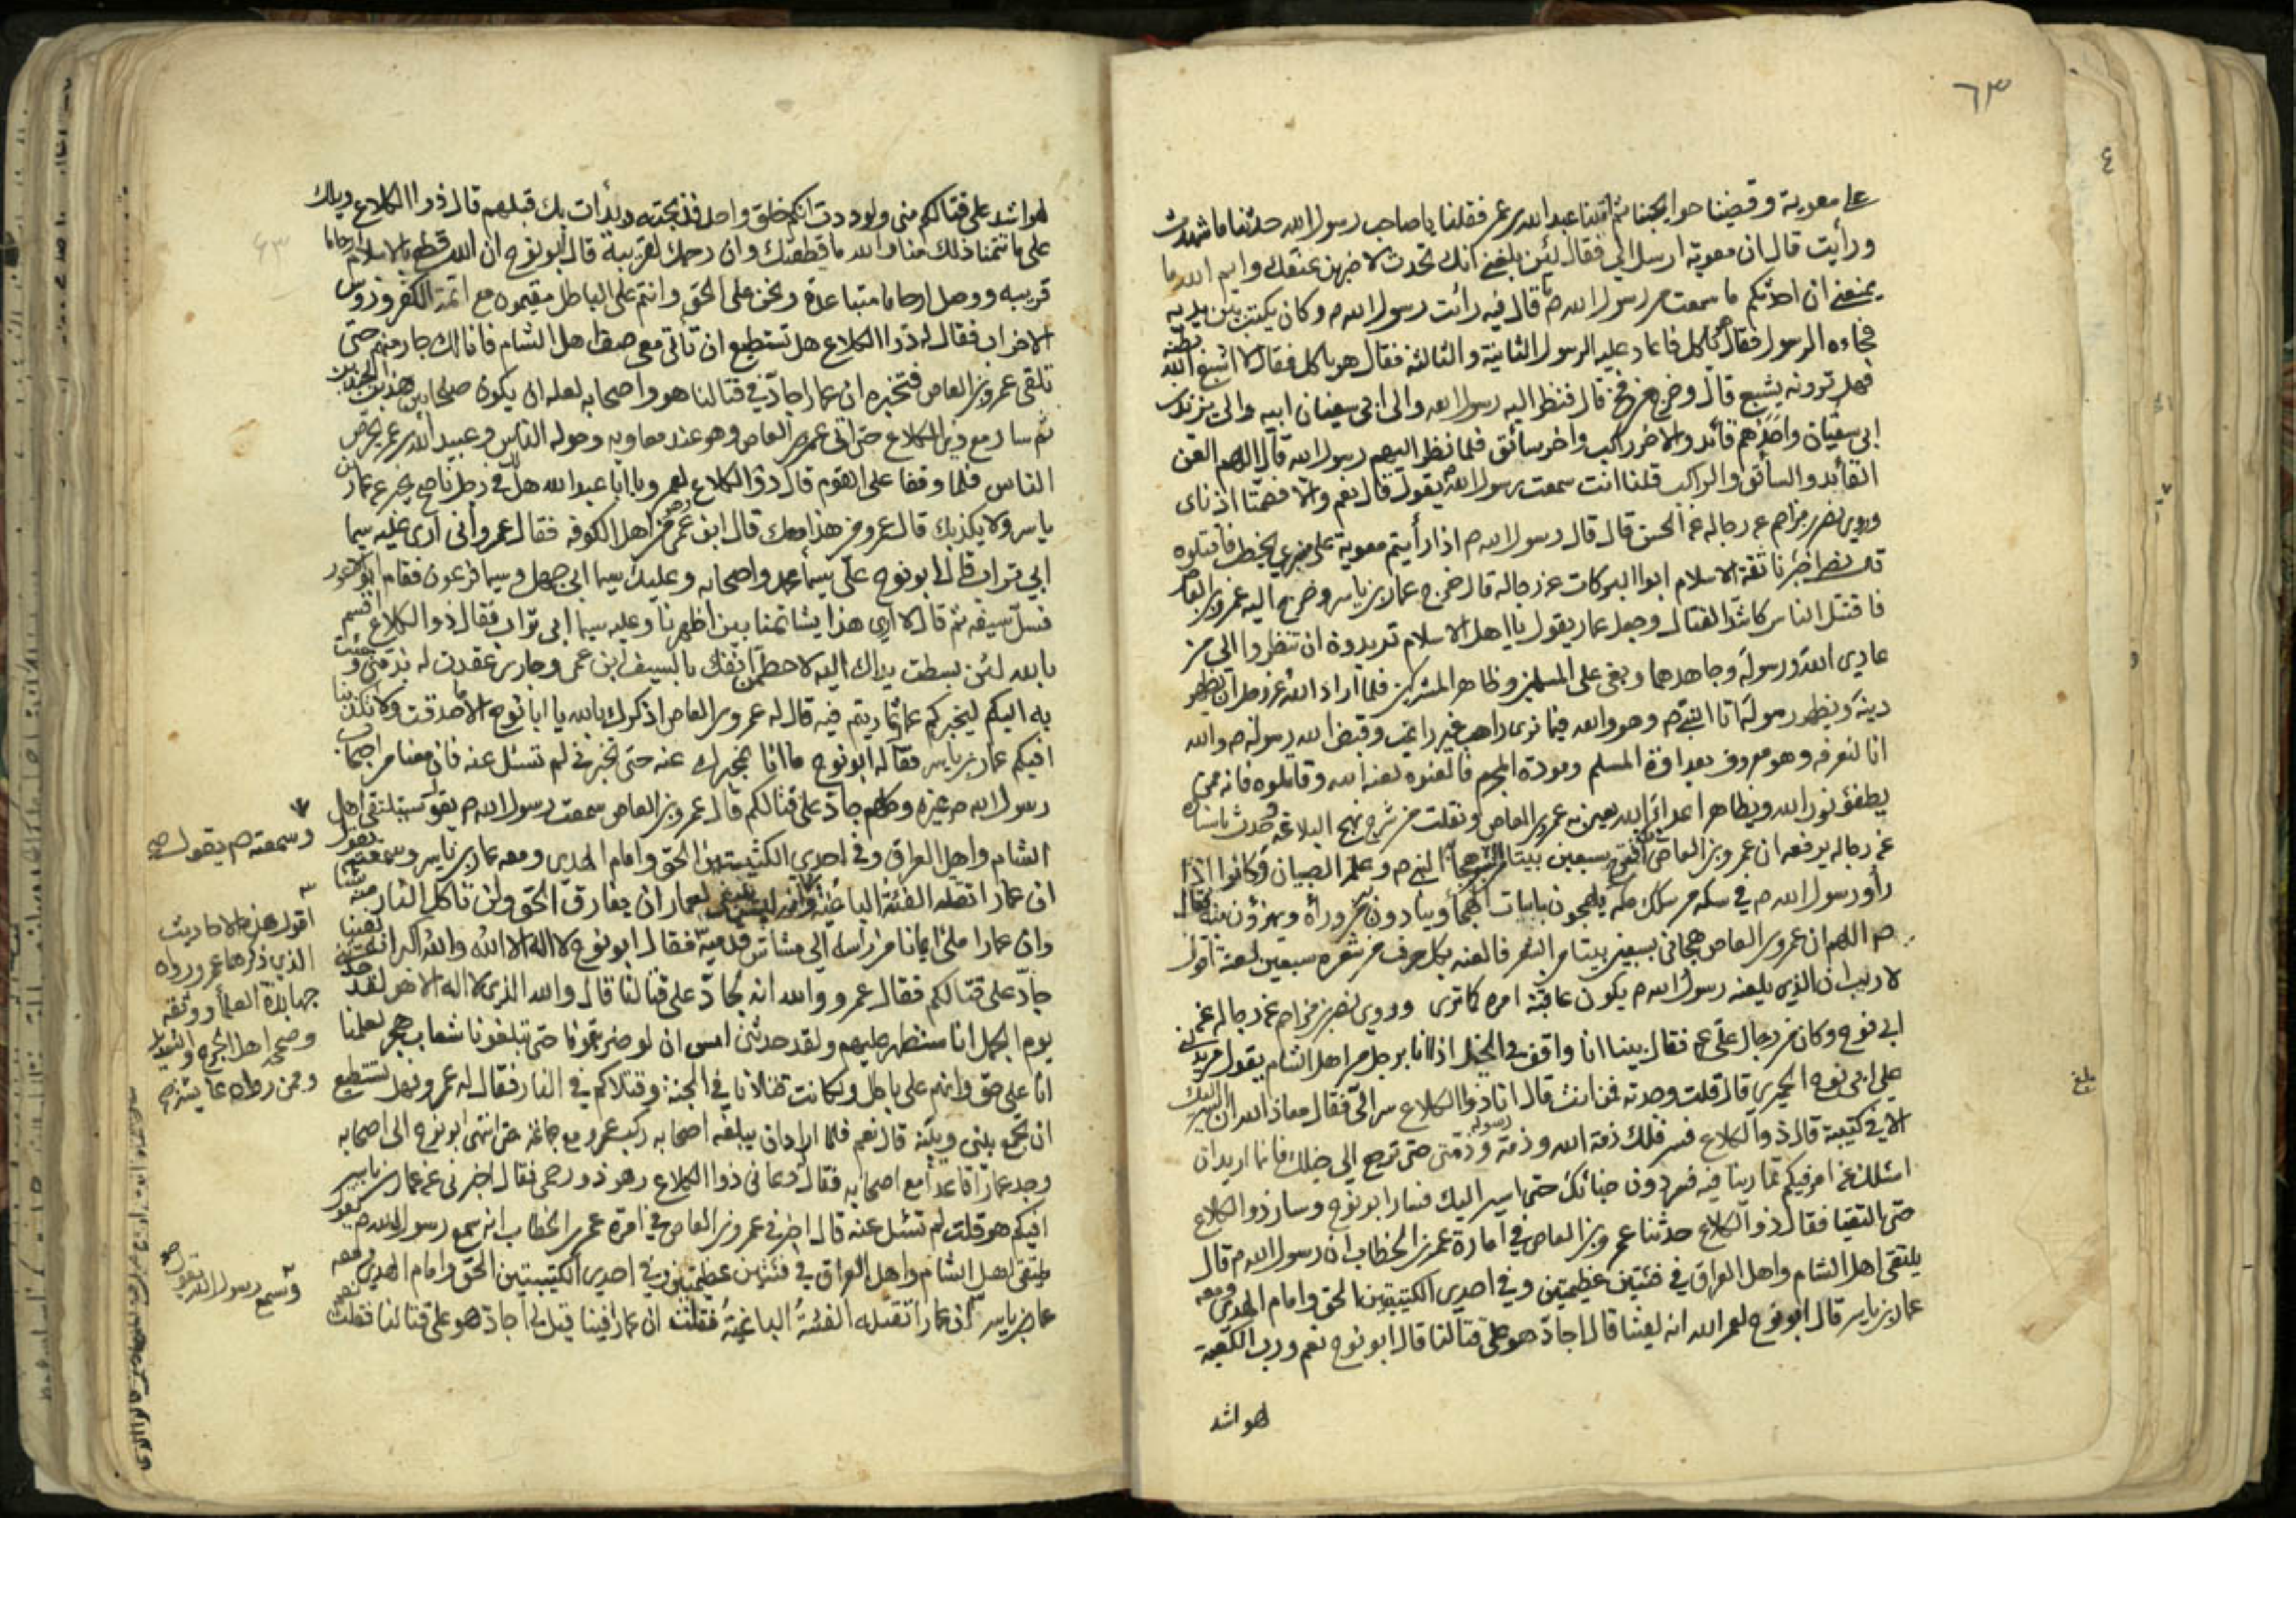 ٦٣
على معوية وقضينا حوايجنا ثم اتينا عبد الله بن عمر فقلنا يا صاحب رسول الله حدثنا ما شهدت
ورأيت قال ان معوية ارسل الي فقال لئن بلغني انك تحدث لاضربن عنقك وايم الله ما
يمنعني ان احدثكم ما سمعت من رسول الله ص قال فيه رأت رسول الله ص وكان يكتب بين يديه
فجاءه الرسول فقال هو ياكل فاعاد عليه الرسول الثانية والثالثة فقال هو ياكل فقال لا اشبع الله بطنه
فهل ترونه يشبع قال وخرج من فج قال فنظر اليه رسول الله والى ابي سفيان ابيه والى يزيد بن
ابي سفيان واحدهم قائد والاخر راكب واخر سائق فلما نظر اليهم رسول الله قال اللهم العن
القائد والسائق والراكب قلنا انت سمعت رسول الله ص يقول قال نعم والا فصمتا اذناى
وروى نصر بن مزاحم عن رجاله عن الحسن قال قال رسول الله ص اذا رأيتم معوية على منبري يخطب فاقتلوه
قال نصر اخبرنا ثقة الاسلام ابو البركات عن رجاله قال خرج عمار بن ياسر وخرج اليه عمرو بن العاص
فاقتتل الناس كاشد القتال وجعل عمار يقول يا اهل الاسلام تريدون ان تنظروا الى من
عادى الله ورسوله وجاهدهما وبغى على المسلمين وظاهر المشركين فلما اراد الله عز وجل ان يظهر
دينه وينصر رسوله اتا النبي ص وهو والله فيما نرى راهب غير راغب وقبض الله رسوله ص والله
انا لنعرفه وهو معروف بعداوة المسلم ومودة المجرم فالعنوه لعنه الله وقاتلوه فانه ممن
يطفؤ نور الله ويظاهر اعداء الله يعين به عمرو بن العاص ونقلت من شرح نهج البلاغة وحدث باسناده
عن رجاله يرفعه ان عمرو بن العاص سبعين بيتا هجا النبي ص وعلم الصبيان وكانوا اذا
رأو رسول الله ص في سكة من سكك مكة يلهجون بابيات الهجا وينادون من ورائه ويهزؤون منه فقال
ص اللهم ان عمرو بن العاص هجاني بسبعين بيتا من الشعر فالعنه بكل حرف من شعره سبعين لعنة اقول
لا ريب ان الذي يلعنه رسول الله ص يكون عاقبة امره كما ترى وروى نصر بن مزاحم عن رجاله عن
ابي نوح وكان من رجال علي ع فقال بينا انا واقف في الخيل اذ انا برجل من اهل الشام يقول من يدلني
على ابي نوح الحميري قال قلت وجدته فمن انت قال انا ذو الكلاع سر الي فقال معاذ الله ان اسير اليك
الا في كتيبة قال ذو الكلاع فسر فلك ذمة الله وذمة رسوله وذمتى حتى ترجع الى خيلك فانما اريد ان
اسئلك عن امر فيكم تمارينا فيه فسار ابو نوح وسار ذو الكلاع
حتى التقيا فقال ذو الكلاع حدثنا عمرو بن العاص في امارة عمر بن الخطاب ان رسول الله ص قال
يلتقى اهل الشام واهل العراق في فئتين عظيمتين وفي احدى الكتيبتين الحق وامام الهدى ومعه
عمار بن ياسر قال ابو نوح لعمر الله انه لفينا قال اجاد هو على قتالنا قال ابو نوح نعم ورب الكعبة
لهو اشد
بلغ
لهو اشد على قتالكم منى ولوددت انكم خلق واحد فذبحته وبدأت بك قبلهم قال ذو الكلاع ويلك
على ما تتمنا ذلك منا والله ما قطعتك وان رحمك لقريبة قال ابو نوح ان الله قطع بالاسلام ارحاما
قريبه ووصل ارحاما متباعدة ونحن على الحق وانتم على الباطل مقيمون مع ائمة الكفر ورؤس
الاحزاب فقال له ذو الكلاع هل تستطيع ان تأتى معى صف اهل الشام فانا لك جار منهم حتى
تلقى عمرو بن العاص فتخبره ان عمارا جاد في قتالنا هو واصحابه لعله ان يكون صلحا بين هذين الجندين
ثم سار مع ذي الكلاع حتى اتى عمرو بن العاص وهو عند معاويه وحوله الناس وعبيد الله بن عمر يحرض
الناس فلما وقفا على القوم قال ذو الكلاع لعمرو يا ابا عبد الله هل لك في رجل ناصح يخبر عن عمار بن
ياسر ولا يكذبك قال عمرو من هذا معك قال ابن عمى من اهل الكوفه فقال عمرو انى ارى عليه سيما
ابي تراب قال ابو نوح علي سيما محمد واصحابه وعليك سيما ابي جهل وسيما فرعون فقام ابو الاعور
فسل سيفه ثم قال لا ارى هذا يشاتمنا بين اظهرنا وعليه سيما ابي تراب فقال ذو الكلاع اقسم
بالله لئن بسطت يدك اليه لاحطمن انفك بالسيف ابن عمى وجارى عقدت له بذمتى وجئت
به اليكم ليخبركم عما تماريتم فيه قال له عمرو بن العاص اذكرك بالله يا ابا نوح الا ما صدقت ولا تكذبنا
افيكم عمار بن ياسر فقال ابو نوح ما انا بمخبرك عنه حتى تخبرني لم تسئل عنه فان معنا من اصحاب
رسول الله ص غيره وكلهم جاد على قتالكم قال عمرو بن العاص سمعت رسول الله ص يقول سيلتقي اهل
الشام واهل العراق وفي احدى الكتيبتين الحق وامام الهدى ومعه عمار بن ياسر وسمعته يقول
ان عمارا تقتله الفئة الباغية وانه ليس ينبغي لعمار ان يفارق الحق ولن تأكل النار منه شيئا
وان عمارا ملئ ايمانا من رأسه الى مشاش قدميه فقال ابو نوح لا اله الا الله والله اكبر انه لفينا
جاد على قتالكم فقال عمرو والله انه لجاد على قتالنا قال والله الذي لا اله الا هو لقد
يوم الجمل انا سنظهر عليهم ولقد حدثنى امس ان لو ضربتمونا حتى تبلغونا شعاب هجر لعلمنا
انا على حق وانهم على باطل ولكانت قتلانا في الجنة وقتلاكم في النار فقال له عمرو فهل تستطيع
ان تجمع بينى وبينه قال نعم فلما اراد ان يبلغه اصحابه ركب عمرو حتى انتهى ابو نوح الى اصحابه
وجد عمارا قاعدا مع اصحابه فقال دعاني ذو الكلاع وهو ذو رحمى فقال اخبرنى عن عمار بن ياسر
افيكم هو قلت لم تسئل عنه قال اخبرني عمرو بن العاص في امرة عمر بن الخطاب انه سمع رسول الله ص يقول
يلتقى اهل الشام واهل العراق في فئتين عظيمتين وفي احدى الكتيبتين الحق وامام الهدى ومعه
عمار بن ياسر ان عمارا تقتله الفئة الباغية فقلت ان عمارا فينا قال اجاد هو على قتالنا فقلت
وسمعته ص يقول
اقول هذه الاحاديث
الذي ذكرها عمرو رواه
جهابذة العلماء ووثقه
وصححه اهل الجرح والتعديل
وسمع رسول الله يقول